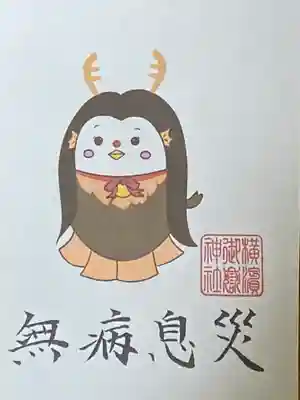 横濱
御嶽
神社
無病息災